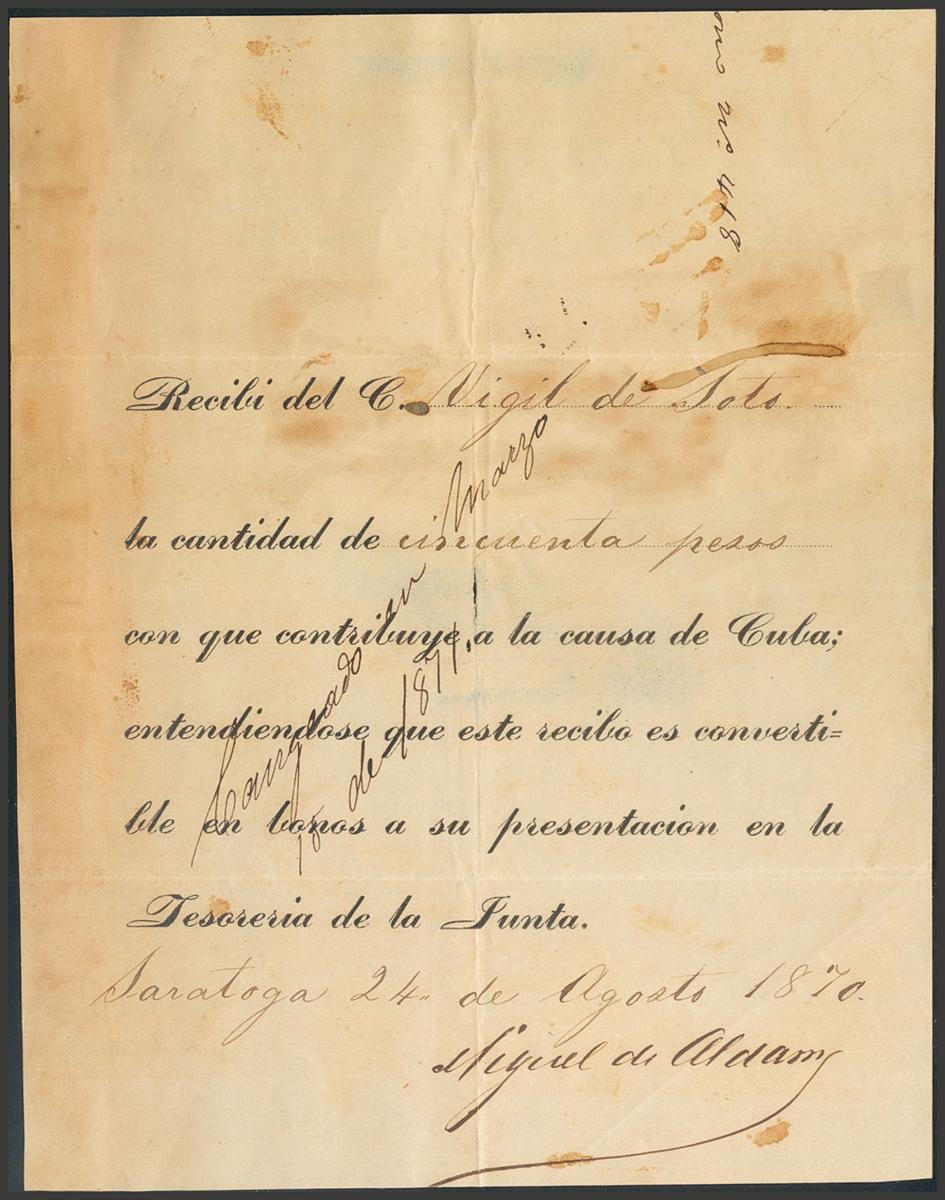 nº 418
Recibi del C. Vigil de Soto.
la cantidad de cincuenta pesos
con que contribuye a la causa de Cuba;
entendiendose que este recibo es converti=
ble en bonos a su presentacion en la
Tesoreria de la Junta.
Saratoga 24 de Agosto 1870.
Miguel de Aldama
Cangeado en Marzo
18 de 1871.